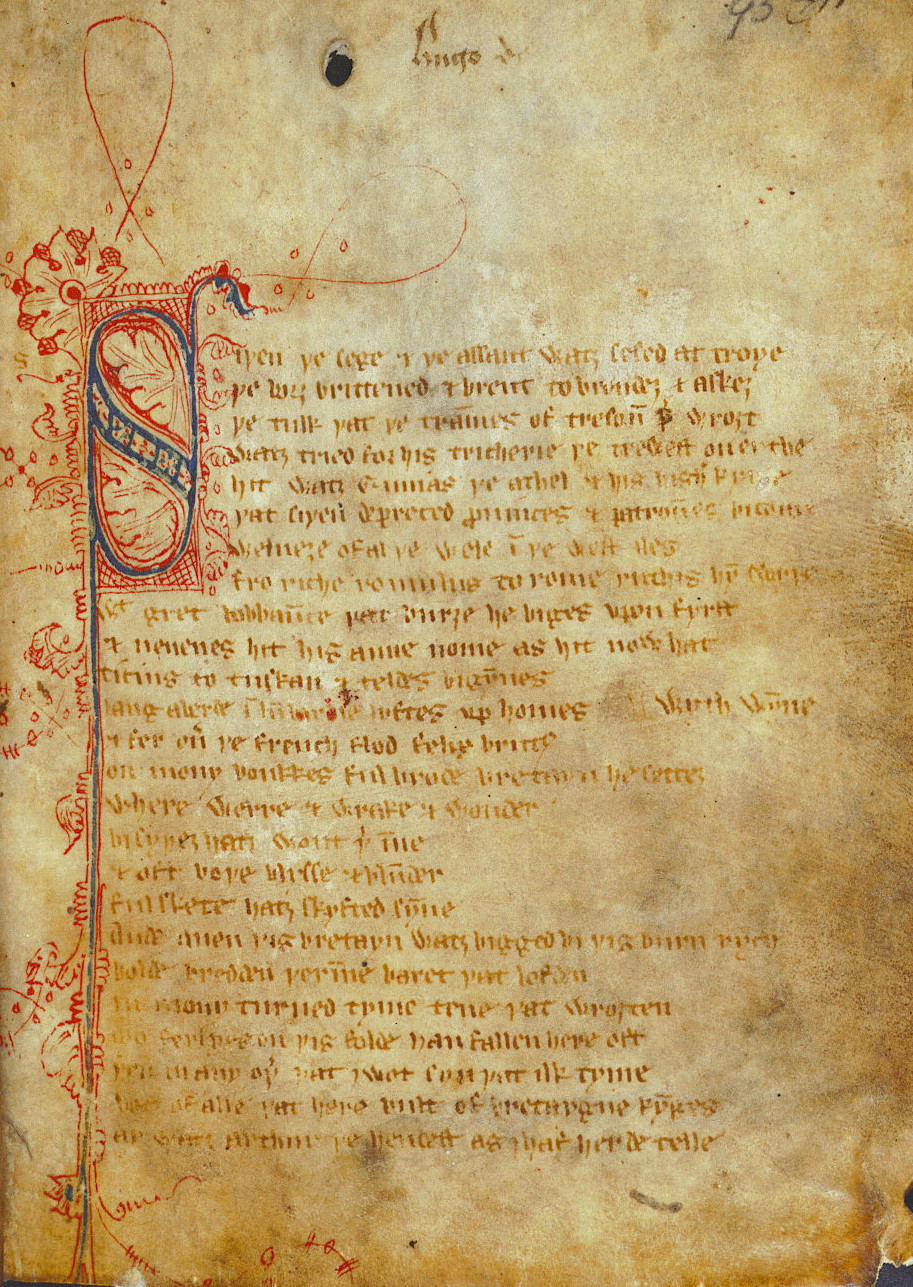 Hugo de
Siþen þe sege & þe assaut watz sesed at troye
þe borȝ brittened & brent to brondeȝ & askez
þe tulk þat þe tra̅mes of tresou̅ þ̕ wroȝt
watz tried for his tricherie þe trewest on erthe
hit watz Ennias þe athel & his highe kynde
þat siþen depreced puinces & patrou̅es bicome
welneȝe of al þe wele i̅ þe west iles
fro riche romulus to rome ricchis hy̅ swyþe
wt gret bobbau̅ce þat burȝe he biges vpon fyrst
& neuenes hit his aune nome as hit now hat
ticius to tuskan & teldes bigy̅nes
langaberde i̅ lu̅bardie lyftes vp homes wyth wy̅ne
& fer ou̕ þe french flod felix brut9
on mony bonkkes ful brode bretayn he settez
where werre & wrake & wonder
bi syþez hatz wont þ̕ i̅ne
& oft boþe blysse & blu̅der
ful skete hatz skyfted sy̅ne
Ande quen þis bretayn watz bigged bi þis burn rych
bolde bredden þeri̅ne baret þat lofden
in mony turned tyme tene þat wroȝten
mo ferlyes on þis folde han fallen here oft
þen in any oþ̕ þat I wot syn þat ilk tyme
bot of alle þat here bult of bretaygne ky̅ges
ay watz arthur þe hendest as I haf herde telle